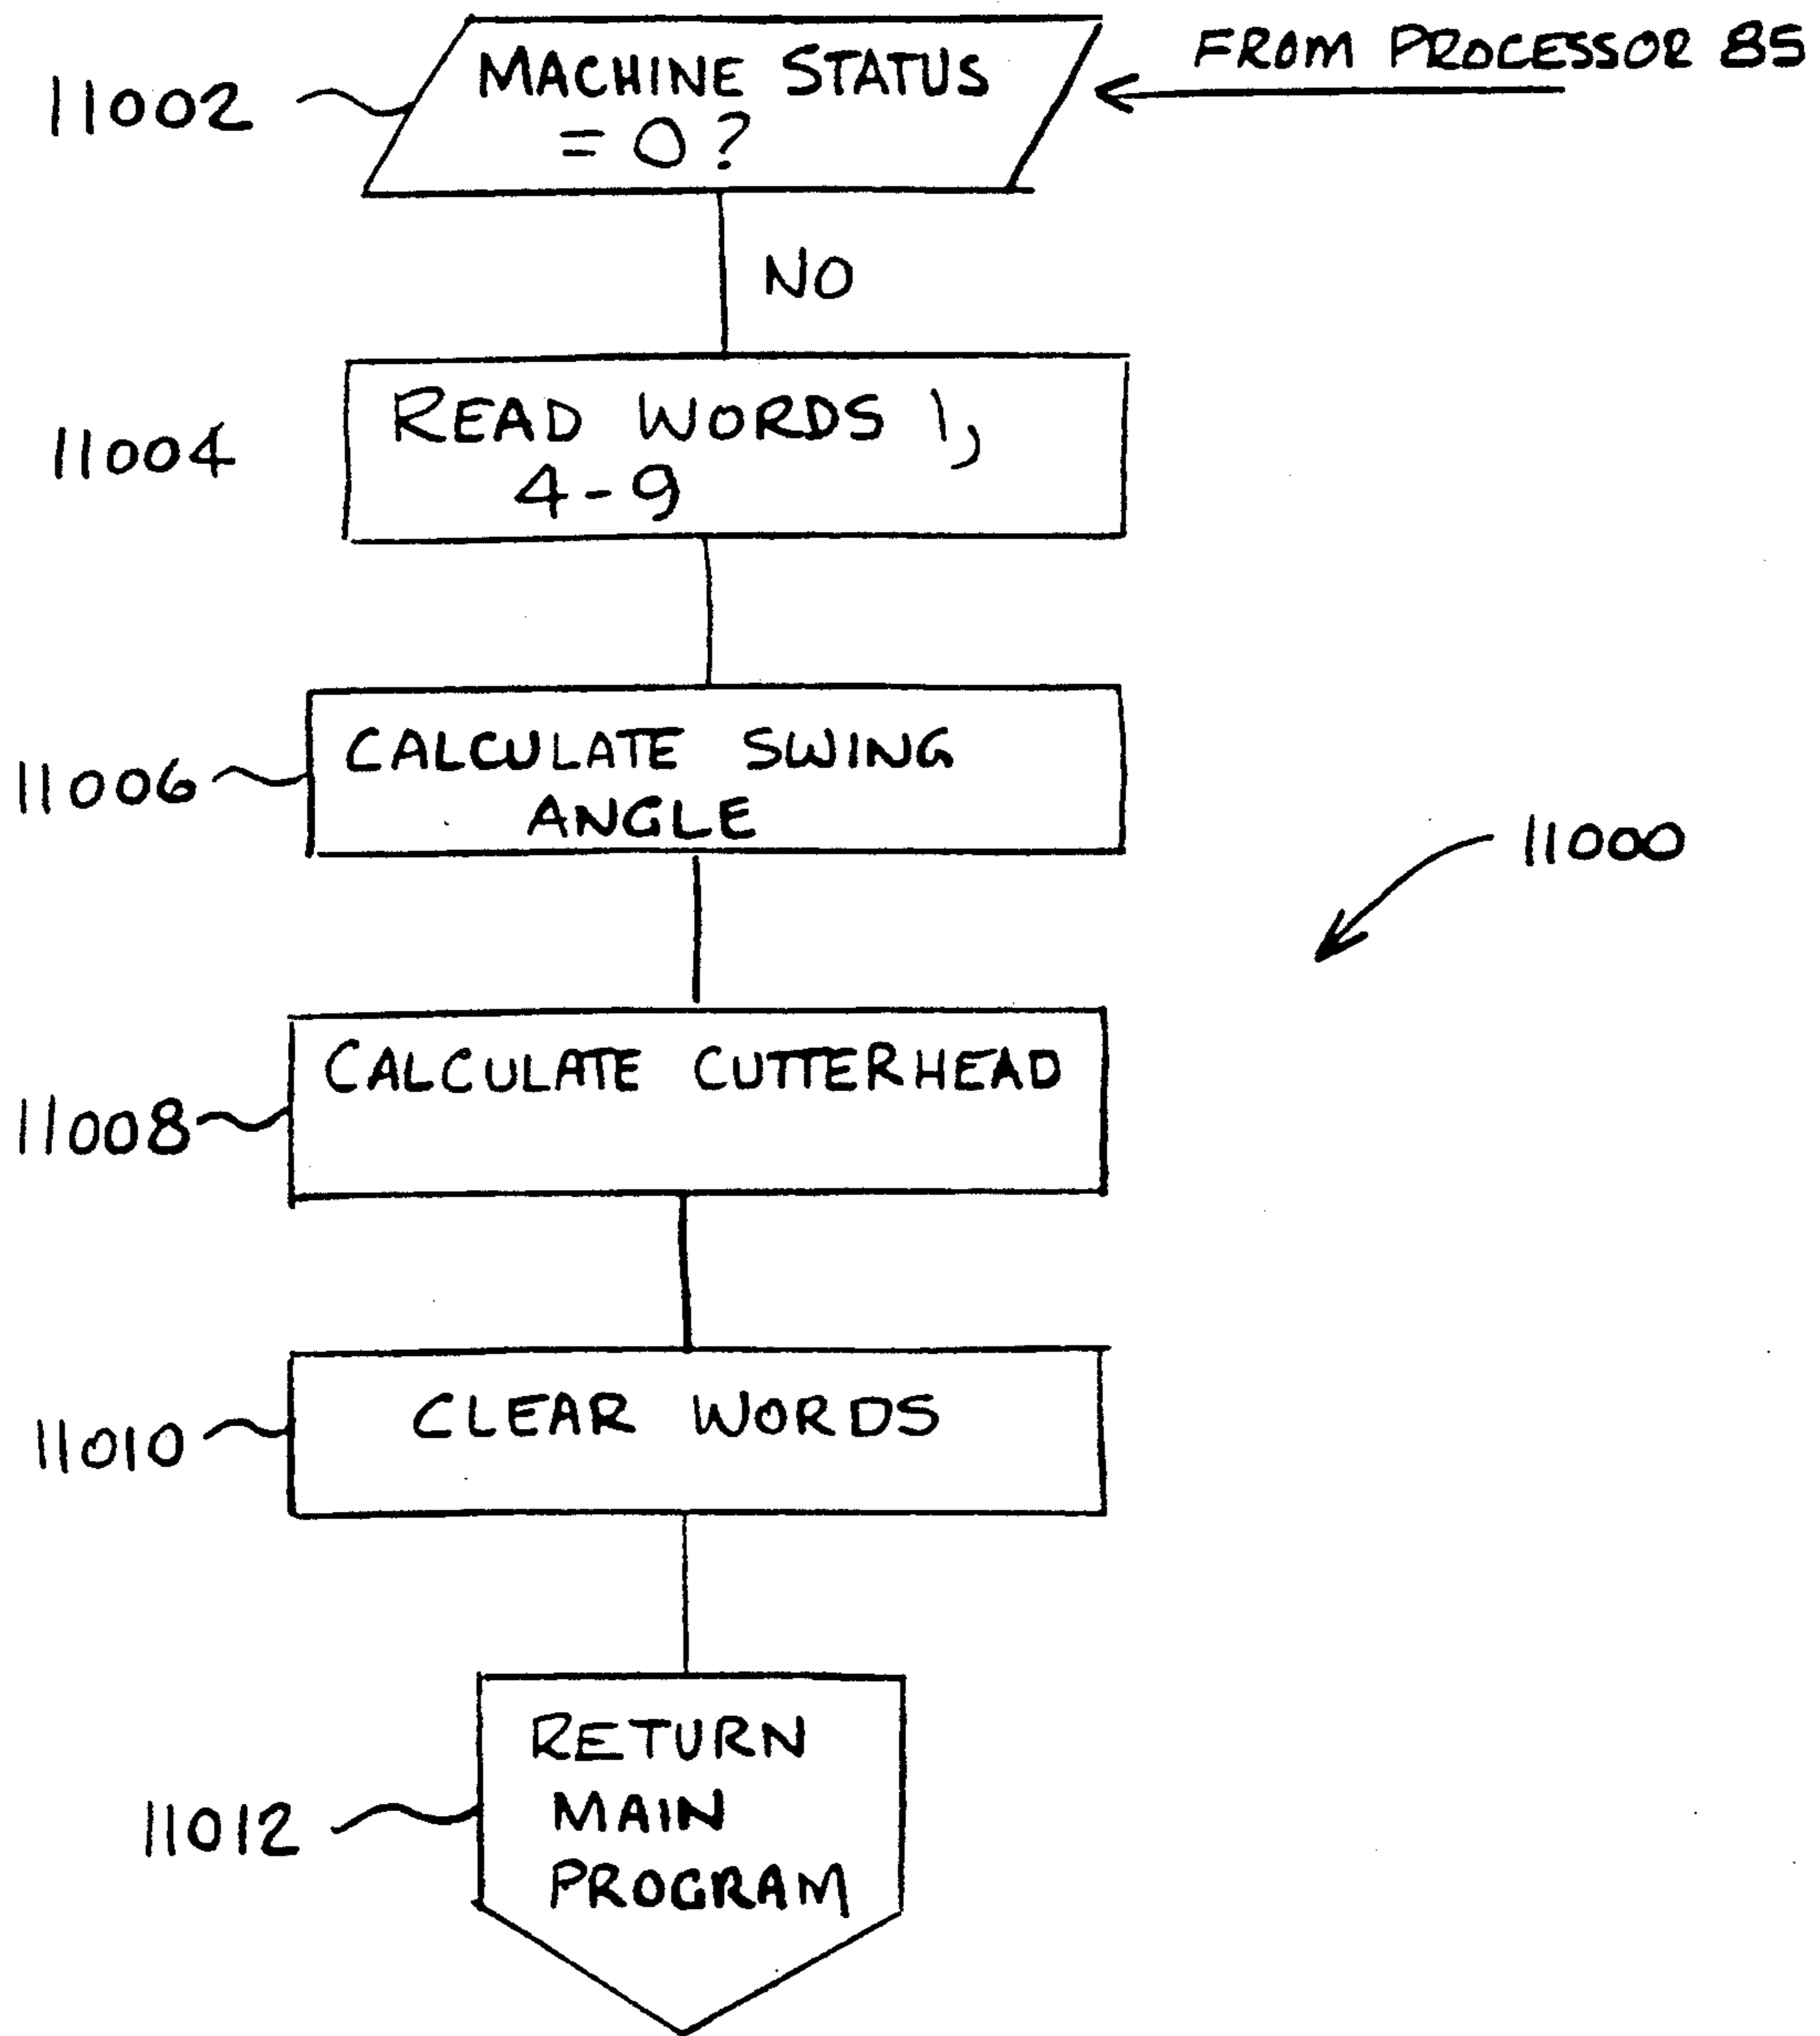 MACHINE STATUS
= 0?
FROM PROCESSOR 85
11002
NO
READ WORDS 1,
4-9
11004
CALCULATE SWING
ANGLE
11006
11000
CALCULATE CUTTERHEAD
11008
CLEAR WORDS
11010
RETURN
MAIN
PROGRAM
11012